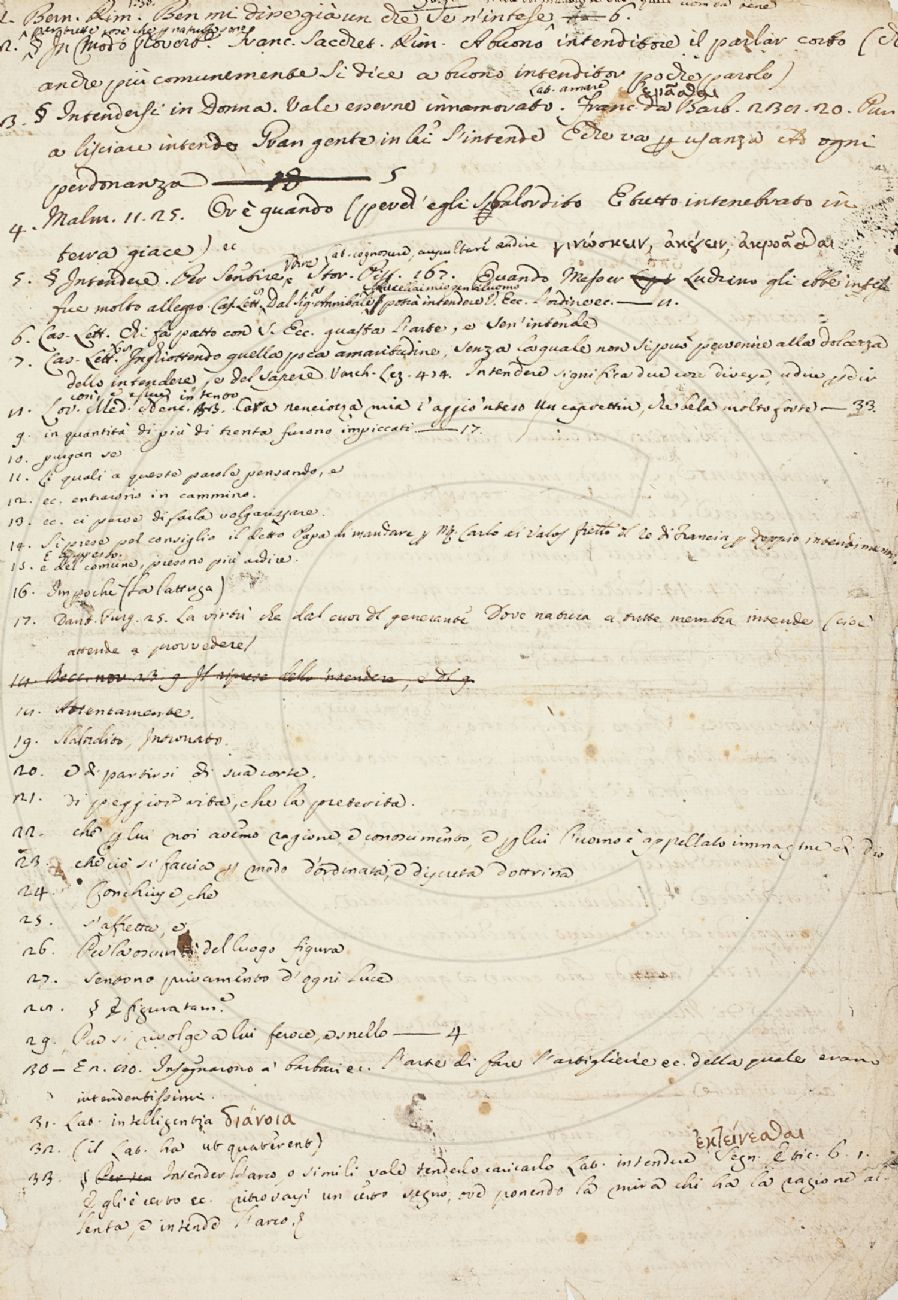 1. Bern. Rim. Ben mi dire già un che se n'intese 6.
2. § In modo proverb. Franc. Sacchet. Rim. A buono intenditore il parlar corto (
anche più comunemente si dice a buono intenditor poche parole)
Lat. amare ἐρᾶσθαι
3. § Intendersi in Donna. Vale esserne innamorato. Franc. da Barb. 2301. 20. Pur
a lisciare intende Gran gente in lei s'intende E che va p usanza Ad ogni
perdonanza 5
4. Malm. 11. 25. Or è quando (perch'egli sbalordito E tutto intenebrato in
terra giace) ec
Lat. cognoscere, auscultare, audire γινώσκειν, ἀκούειν, ἀκροᾶσθαι
5. § Intendere. Per Sentire, Stor. Pist. 167. Quando Messer Ludovico gli ebbe
fue molto allegro. Cas. Lett. Dal Sig. Annibale potrà intendere V. Ecc. l'ordine ec.
6. Cas. Lett. Chi fa patto con V. Ecc. guasta l'arte, e sen'intende
7. Cas. Lett. Inghiottendo quella poca amaritudine, senza la quale non si può pervenire alla dolcezza
dello intendere, e del sapere Varch. Lez. 414. Intendere significa due cose diverse, udire
Lor. Med. Nenc. Cara nenciozza mia i' aggio 'nteso Un caprettin, che bela molto forte — 33.
9. in quantità di più di trenta furono impiccati — 17.
10. purgan se
11. Li quali a queste parole pensando, e
12. ec. entrarono in cammino.
13. ec. ci parve di farla volgarizzare.
14. Si prese pel consiglio il detto Papa di mandare p M. Carlo di Valos fratello del Re di Francia p doppio intendimento
15. e del comune, presono più ardire.
16. Impoche (la lattuga)
17. Dant. Purg. 25. La virtù che dal cuor del generante Dove natura a tutte membra intende (cioè
attende a provvedere)
14. Bocc. nov. 23. 9
Attentamente.
19. Sbalordito, Intronato.
20. e di partirsi di sua corte.
21. di peggior vita, che la preterita.
22. che p lui noi avemo ragione, e conoscimento, e p lui l'uomo è appellato immagine di Dio
23. che ciò si faccia p modo d'ordinata, e discreta dottrina
24. Conchiuse, che
25. s'affretta, e
26. Per la oscurità del luogo figura
27. sentono privamento d'ogni luce
28. § E figuratam.e
29. Pur si rivolge a lui feroce, e snello — 4
30 — En. 110. Insegnarono a' barbari ec. l'arte di fare l'artiglierie ec. della quale erano
intendentissimi.
31. Lat. intelligentia διάνοια
32. (il Lat. ha ut quaterent)
ἐκτείνεσθαι
33. § Intender l'arco, o simili vale tenderlo, caricarlo Lat. intendere Segn. Etic. 6. 1.
Egli è certo ec. ritrovarsi un certo segno, ove ponendo la mira chi ha la ragione al-
lenta, e intende l'arco.